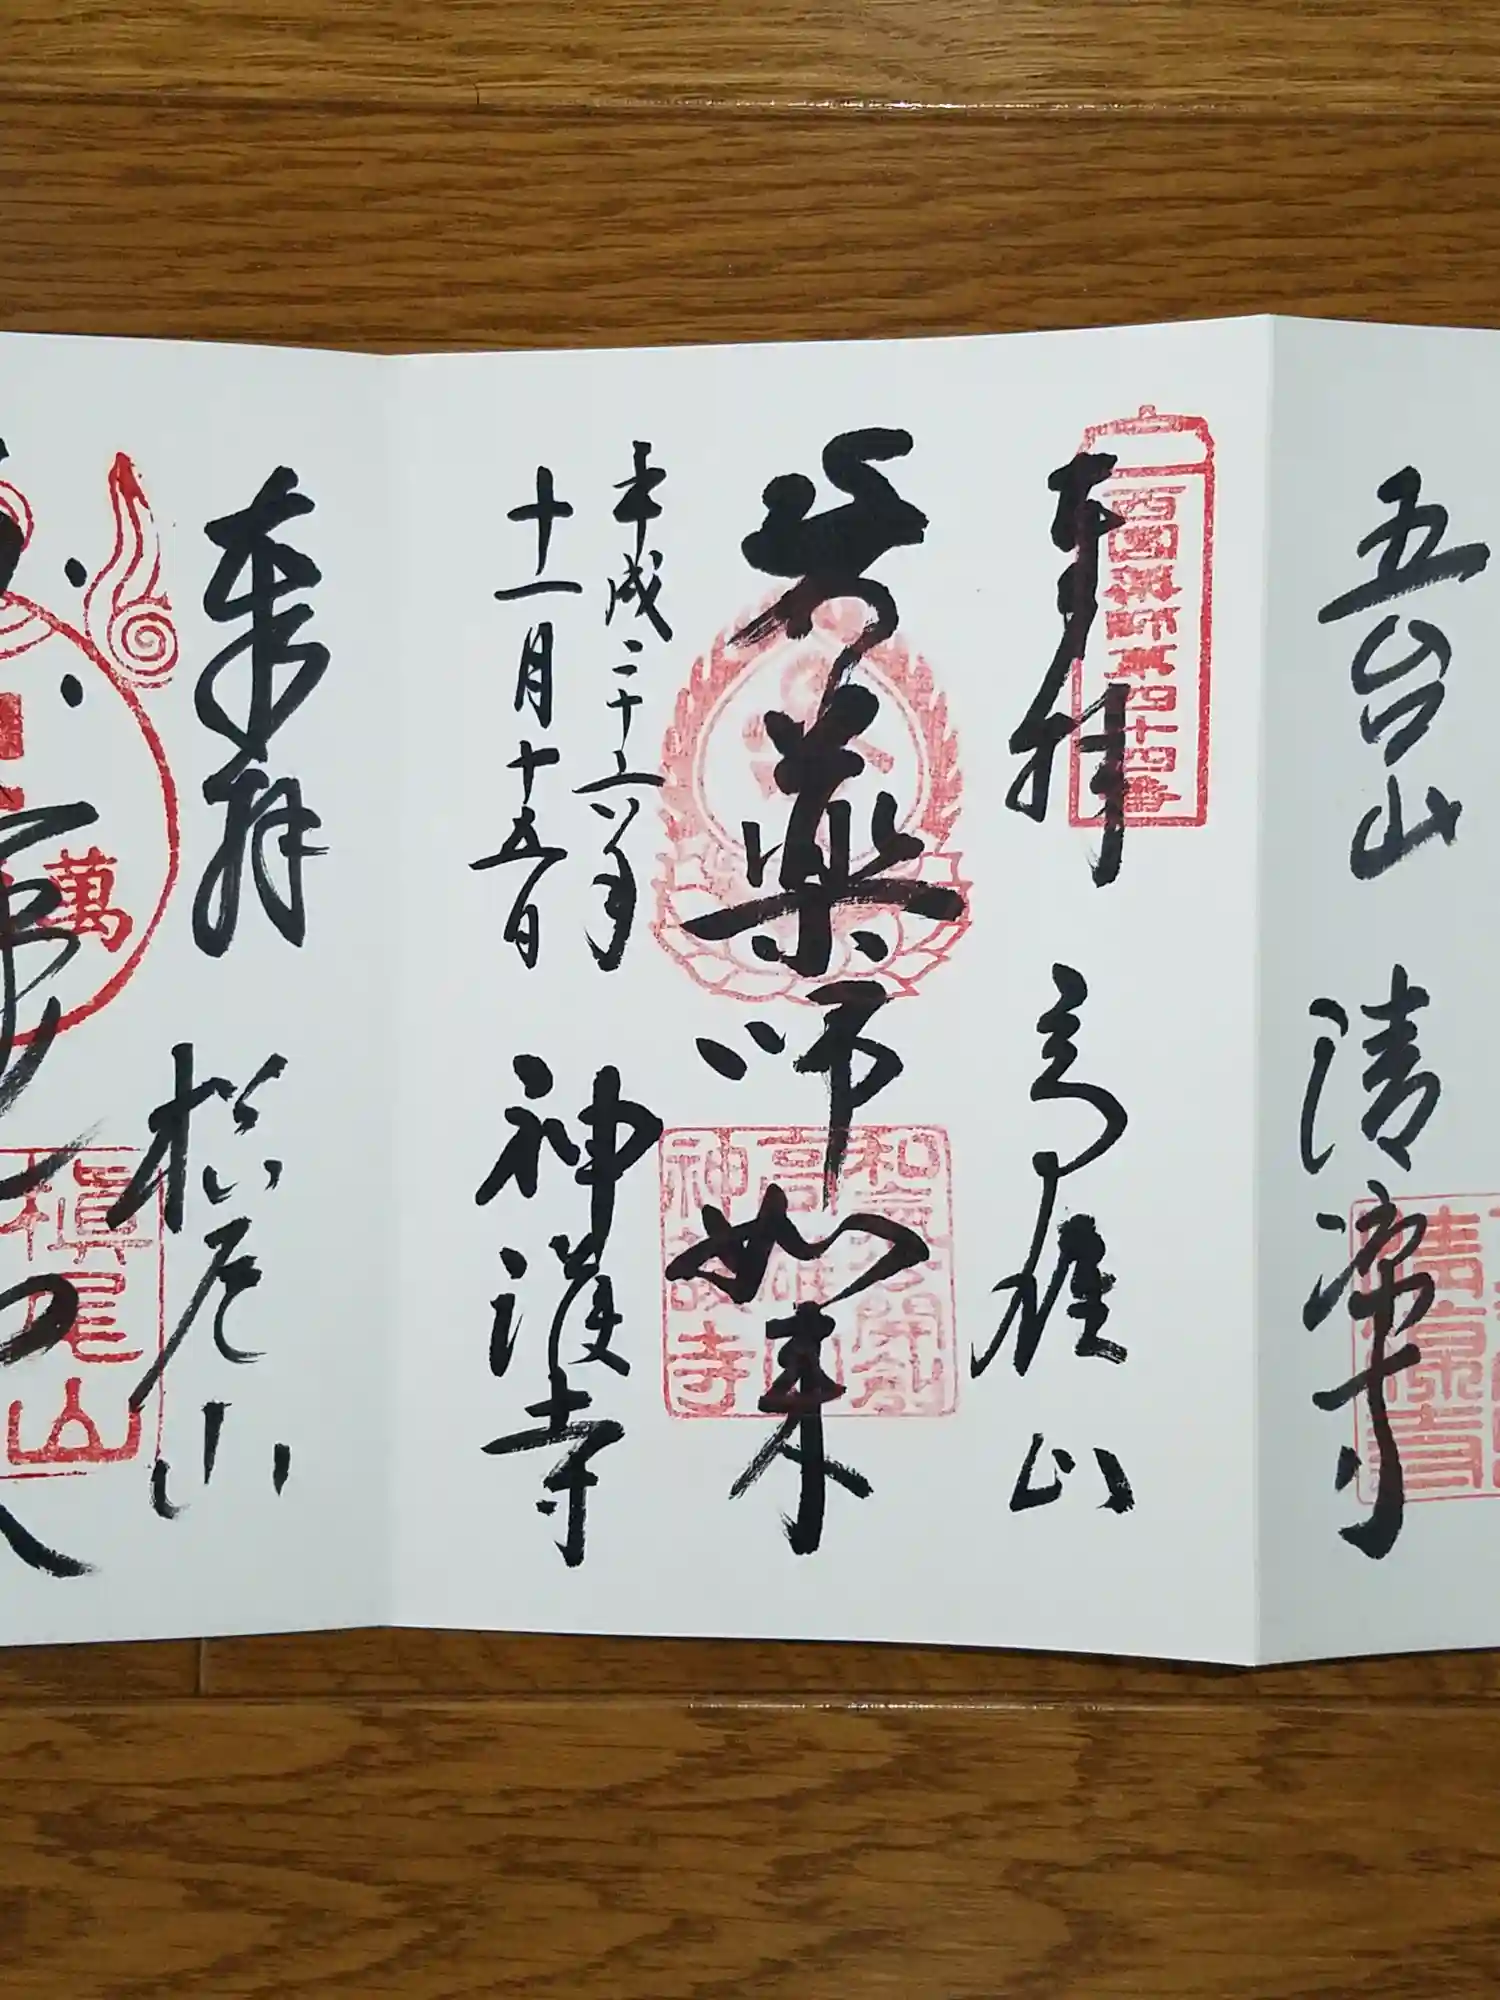 五台山 清凉寺
奉拝 高雄山
西国薬師第四十四番
薬師如来
和氣公開創
高雄山
神護寺
平成二十六年
十一月十五日
神護寺
奉拝 槙尾山
萬
槇尾山